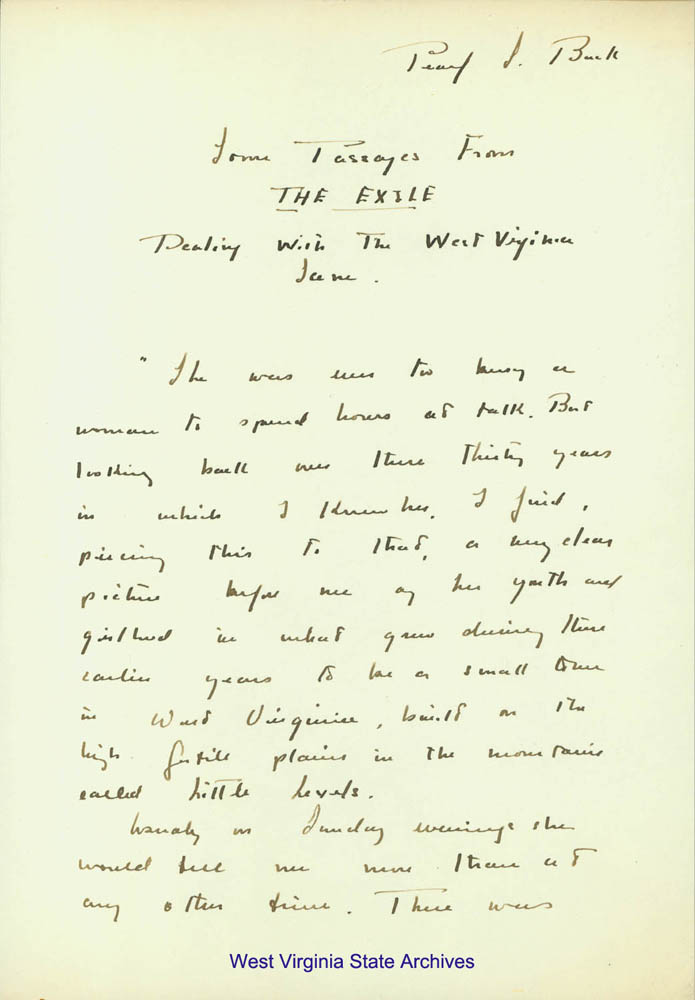 Pearl S. Buck
Some Passages From
THE EXILE
Dealing With The West Virginia
Scene.
"She was ever too busy a
woman to spend hours at talk. But
looking back over those thirty years
in which I knew her, I find,
piecing this to that, a very clear
picture before me of her youth and
girlhood in what grew during those
earlier years to be a small town
in West Virginia, built on the
high fertile plains in the mountains
called Little Levels.
Usually on Sunday evenings she
would tell me more than at
any other time. There was
West Virginia State Archives